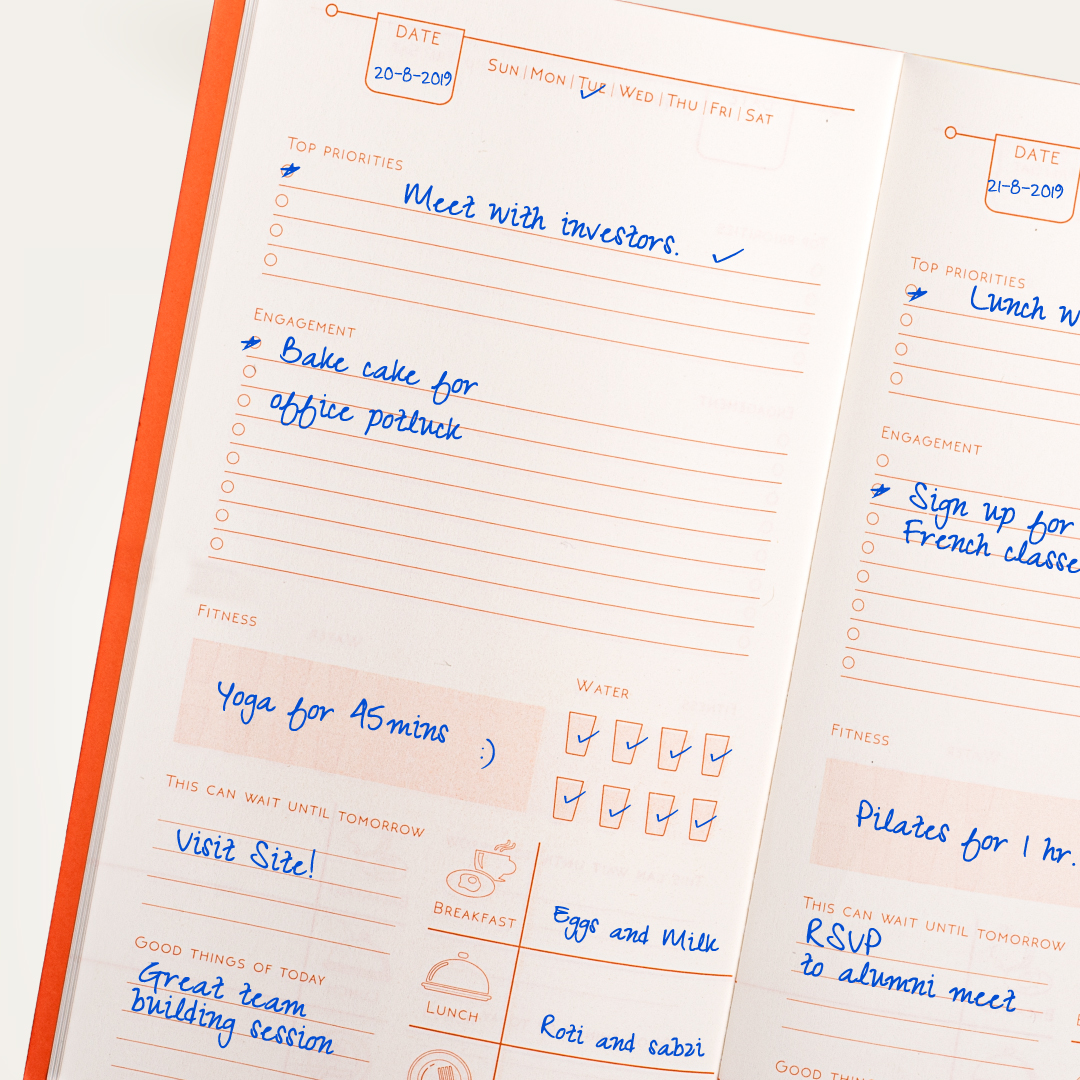 DATE
20-8-2019
SUN | MON | TUE | WED | THU | FRI | SAT
TOP PRIORITIES
Meet with investors.
ENGAGEMENT
Bake cake for
office potluck
FITNESS
Yoga for 45mins :)
WATER
THIS CAN WAIT UNTIL TOMORROW
Visit Site!
GOOD THINGS OF TODAY
Great team
building session
BREAKFAST
Eggs and Milk
LUNCH
Roti and sabzi
DATE
21-8-2019
TOP PRIORITIES
Lunch w
ENGAGEMENT
Sign up for
French classe
FITNESS
Pilates for 1 hr.
THIS CAN WAIT UNTIL TOMORROW
RSVP
to alumni meet
GOOD THIN